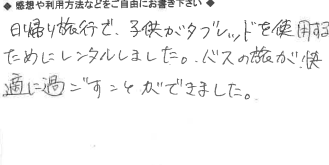 ◆ 感想や利用方法などをご自由にお書き下さい ◆
日帰り旅行で、子供がタブレッドを使用する
ためにレンタルしました。バスの旅が快
適に過ごすことができました。